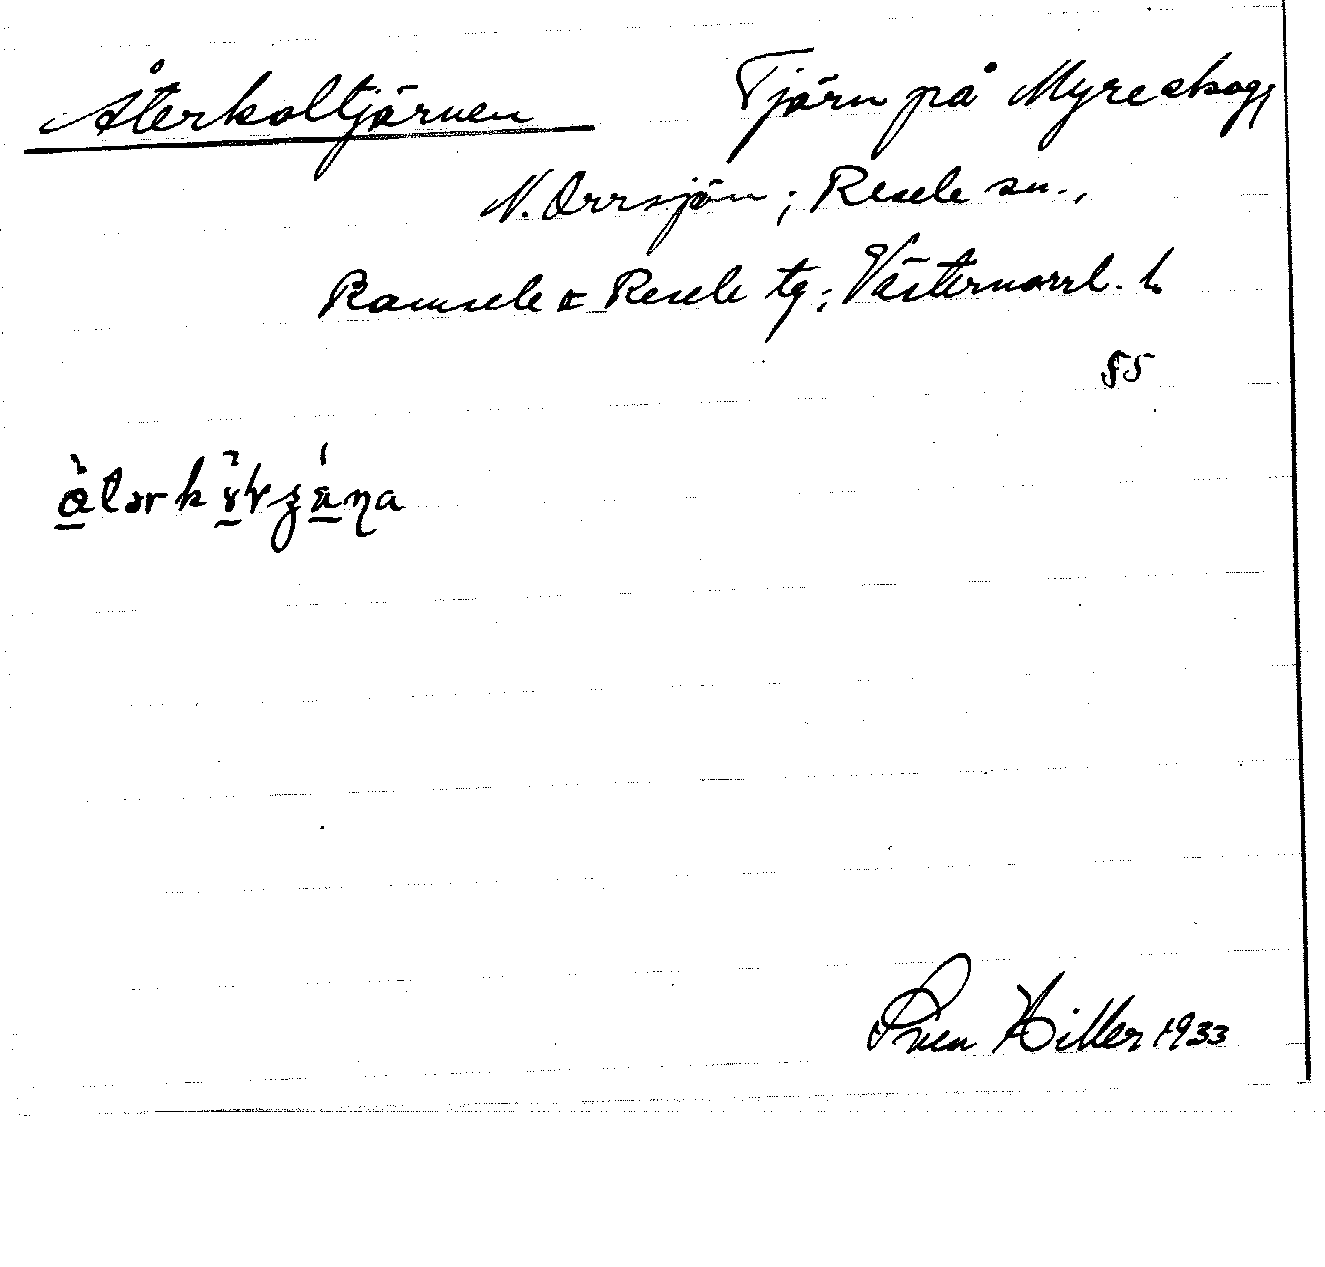 Återkoltjärnen Tjärn på Myreskog,
N. Orrsjön; Resele sn.,
Ramsele & Resele tg; Västernorrl. l.
§5
Sven Hiller 1933